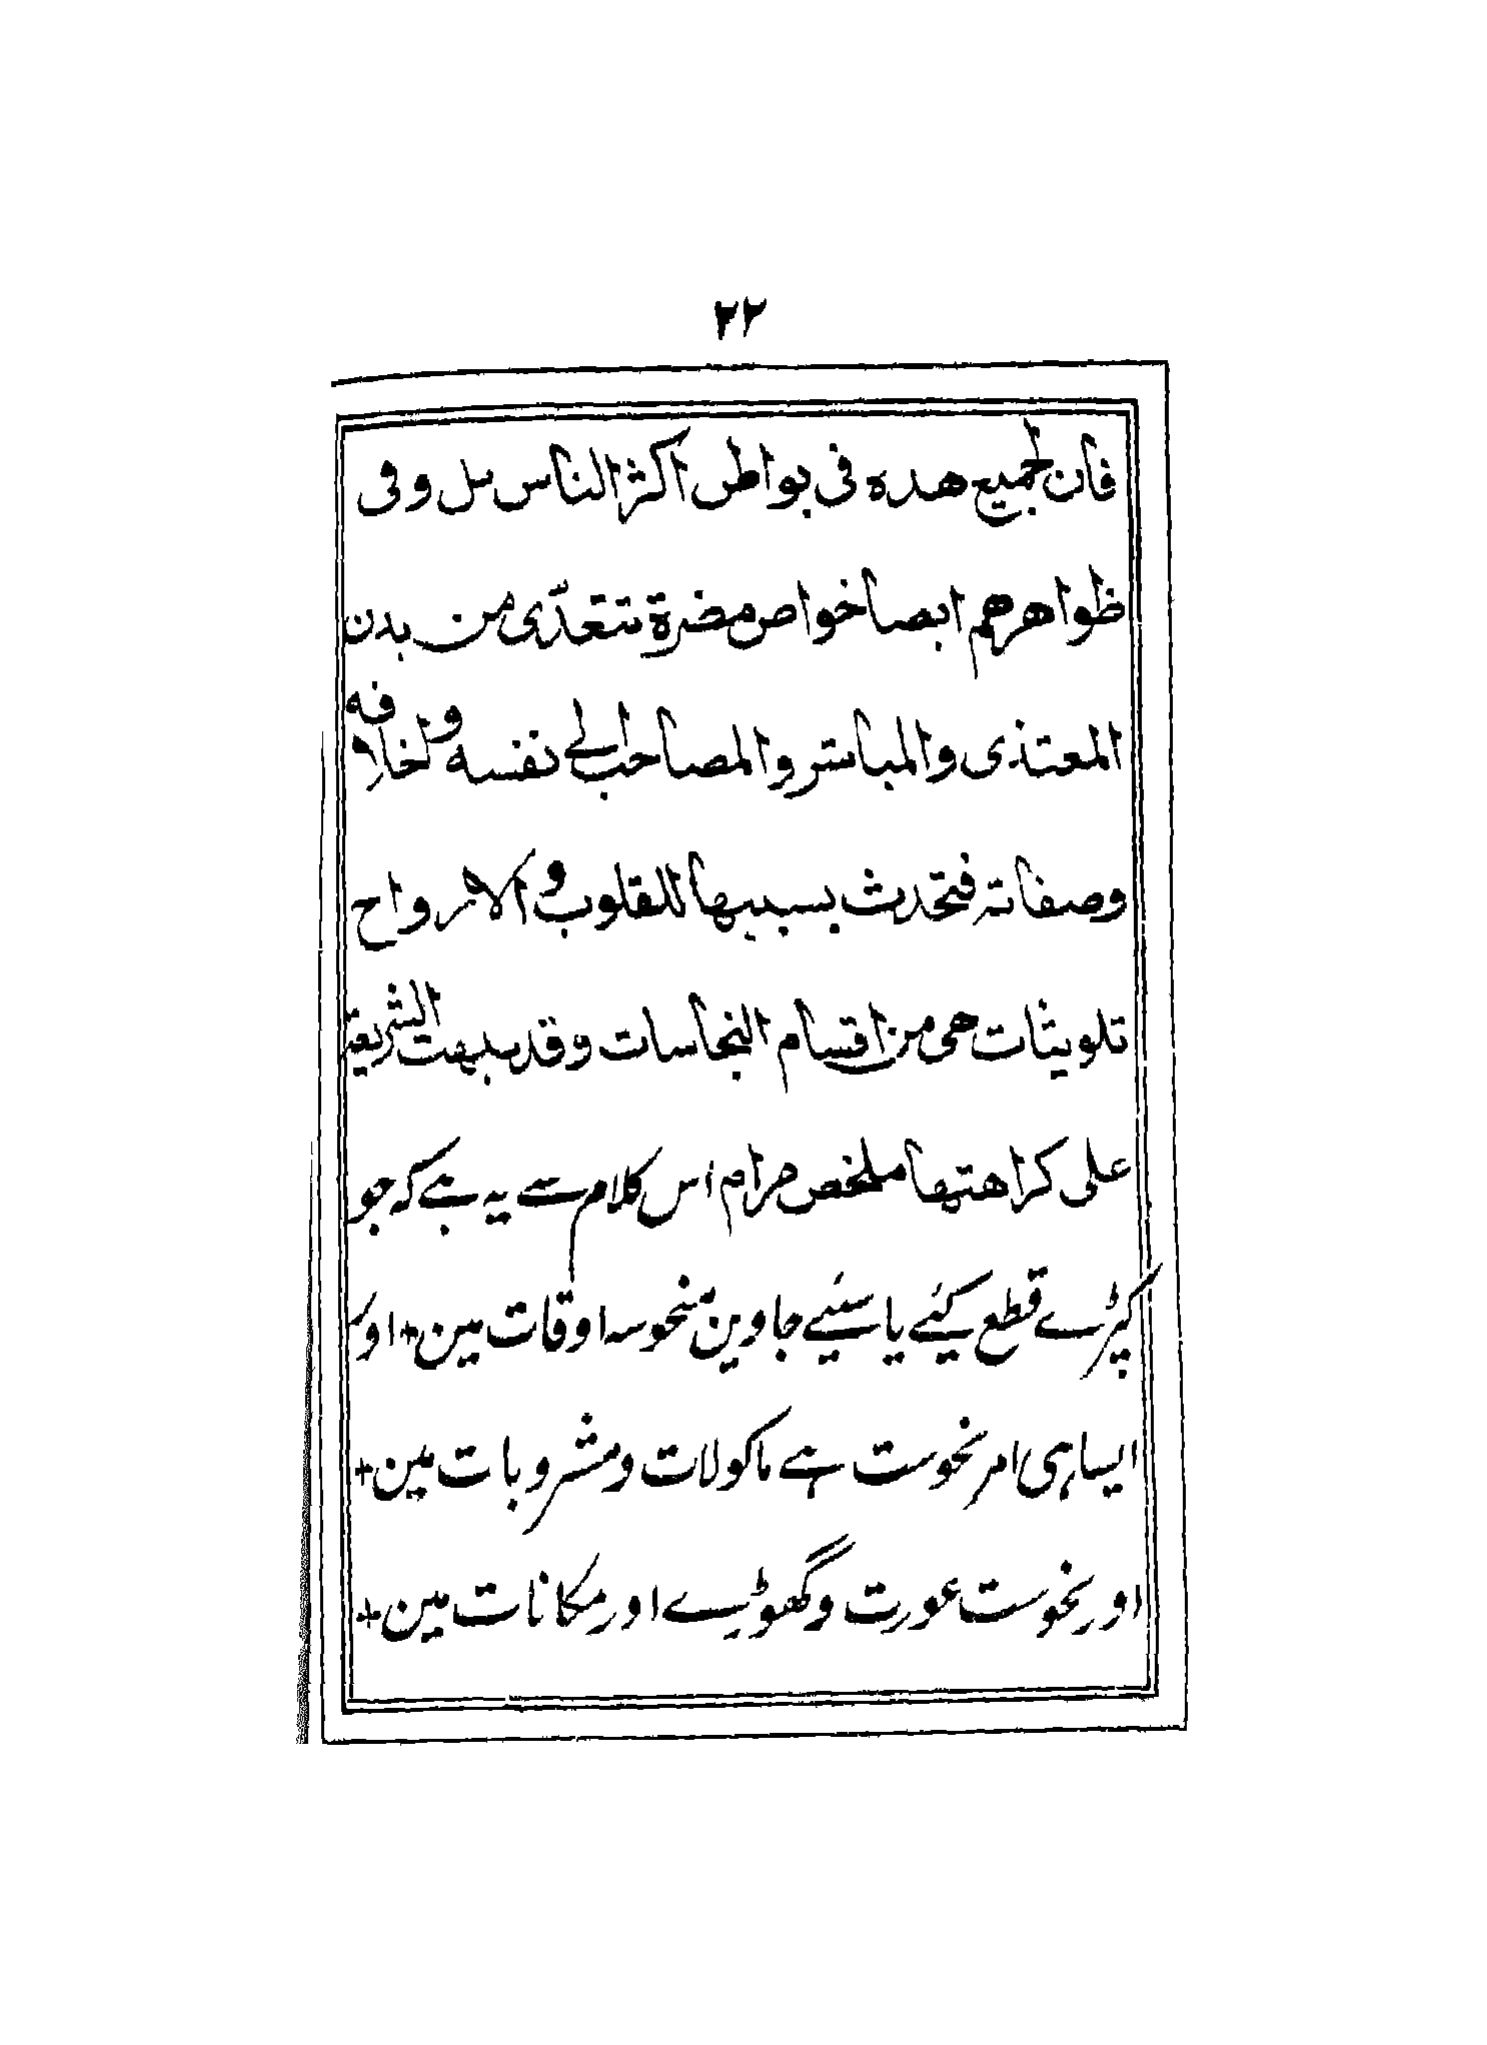 ۲۲
فان لجميع هذه فى بواطن اكثر الناس بل و فى
ظواهرهم ايضا خواص مضرة تتعدّى من بدن
المغتذى والمباشر والمصاحب الى نفسه و اخلاقه
وصفاته فتحدث بسببها للقلوب و الارواح
تلويثات هى من اقسام النجاسات وقد نبهت الشريعة
على كراهتها ملخص مرام اس کلام سے یہ ہے کہ جو
کپڑے قطع کیئے یا سیئے جاوین منحوسہ اوقات مین + اور
ایسا ہی امر نحوست ہے ماکولات و مشروبات مین +
اور نحوست عورت و گھوڑے اور مکانات مین +